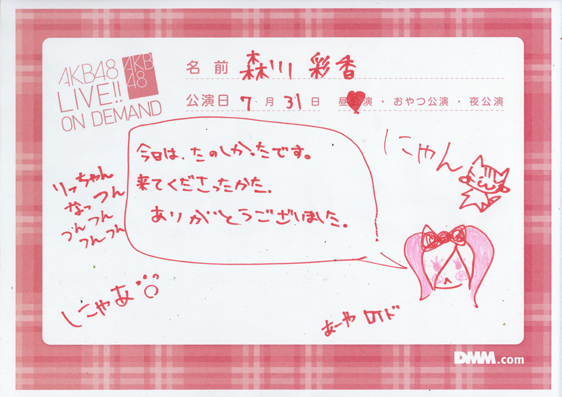 AKB48
LIVE!!
ON DEMAND
AKB
48
名前 森川 彩香
公演日 7月31日 昼公演・おやつ公演・夜公演
今日は、たのしかったです。
来てくださったかた、
ありがとうございました。
にゃん
りっちゃん
なっつん
づんづん
つんつん
しにゃあ
あーや ロイド
DMM.com